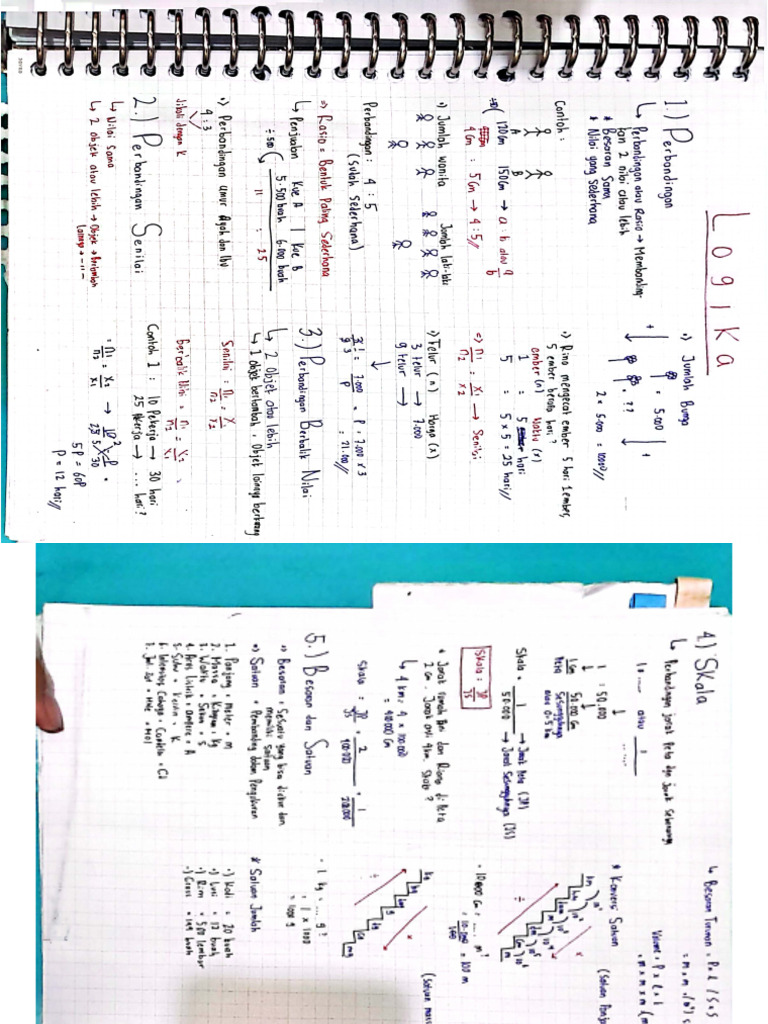 LOGIKA
1.) Perbandingan
↳ Perbandingan atau Rasio → Membanding-
kan 2 nilai atau lebih
* Besaran Sama
* Nilai yang sederhana
Contoh :
A B
120 Gm 150 Gm → a : b atau a/b
4 Gm : 5 Gm → 4 : 5 //
•) Jumlah wanita Jumlah laki-laki
Perbandingan : 4 : 5
(sudah sederhana)
⇒ Rasio = Bentuk Paling Sederhana
↳ Penjualan Kue A | Kue B
÷ 500 ( 5.500 buah 6.000 buah
11 : 25
⇒ Perbandingan umur Ayah dan Ibu
4 : 3
dikali dengan k
2.) Perbandingan Senilai
↳ Nilai Sama
↳ 2 Objek atau lebih → Objek → Bertambah
lainnya → - 11 -
•) Jumlah Bunga
= 5.000
= ??
2 × 5.000 = 10000 //
•) Rino mengecat ember 5 hari 1 ember,
5 ember berapa hari ?
ember (n) Waktu (x)
1 = 5 hari
5 = 5 × 5 = 25 hari //
⇒ n1/n2 = x1/x2 → Senilai
•) Telur (n) Harga (x)
3 telur → 7.000
9 telur →
3/9 = 7.000/P = P = 7.000 × 3
= 21.000 //
3.) Perbandingan Berbalik Nilai
↳ 2 Objek atau lebih
↳ 1 Objek bertambah, Objek lainnya berkurang
Senilai = n1/n2 = x1/x2
Berbalik Nilai = n1/n2 = x2/x1
Contoh 1 : 10 Pekerja → 30 hari
25 Pekerja → ... hari ?
= n1/n2 = x2/x1 → 10/25 = P/30
5P = 60P
P = 12 hari //
4) Skala
↳ Perbandingan jarak Peta dgn jarak Sebenarnya
1 : ..... atau 1/.....
1 : 50.000
1 cm 50.000 Cm
Peta Sesungguhnya
atau 0.5 km
Skala = 1/50.000 → Jarak Peta (JP)
→ Jarak Sesungguhnya (JS)
Skala = JP/JS
2 Cm. Jarak asli 4km. Skala ?
↳ 4 km = 4 × 100.000
= 400.000 Cm
Skala = JP/JS = 2/400.000 = 1/200.000
5.) Besaran dan Satuan
⇒ Besaran = Sesuatu yang bisa diukur dan
memiliki satuan
⇒ Satuan = Pembanding dalam Pengukuran
1. Panjang = Meter = m
2. Massa = Kilogram = kg
3. Waktu = Sekon = S
4. Arus Listrik = ampere = A
5. Suhu = Kelvin = K
6. Intensitas Cahaya = Candela = Cd
7. = Mol = mol
↳ Besaran Turunan = Luas
Volume = P × l × t
= m × m × m
* Konversi Satuan
÷ ×
= 10000 Cm = .... m ?
= 10.000/100 = 100 m
kg
hg
g
mg
÷ ×
= 1 kg = .... g ?
= 1 × 1000
= 1000 g
* Satuan Jumlah
•) Kodi = 20 buah
•) Lusi = 12 buah
•) Rim = 500 lembar
•) Gross = 144 buah